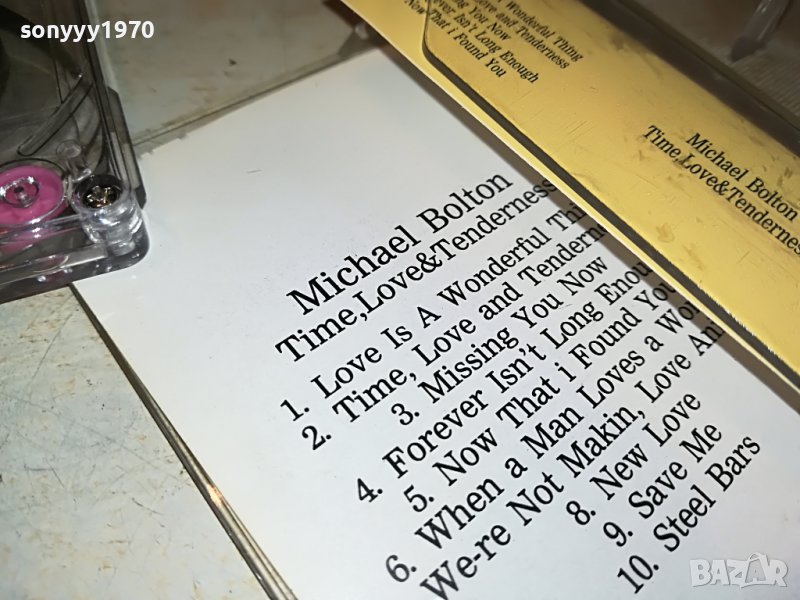 sonyyy1970
Wonderful Thing
Love and Tenderness
You Now
Isn't Long Enough
Now That i Found You
Michael Bolton
Time,Love&Tenderness
Michael Bolton
Time,Love&Tenderness
1. Love Is A Wonderful Thi
2. Time, Love and Tenderne
3. Missing You Now
4. Forever Isn't Long Enou
5. Now That i Found You
6. When a Man Loves a Wo
We-re Not Makin, Love An
8. New Love
9. Save Me
10. Steel Bars
BAZAR